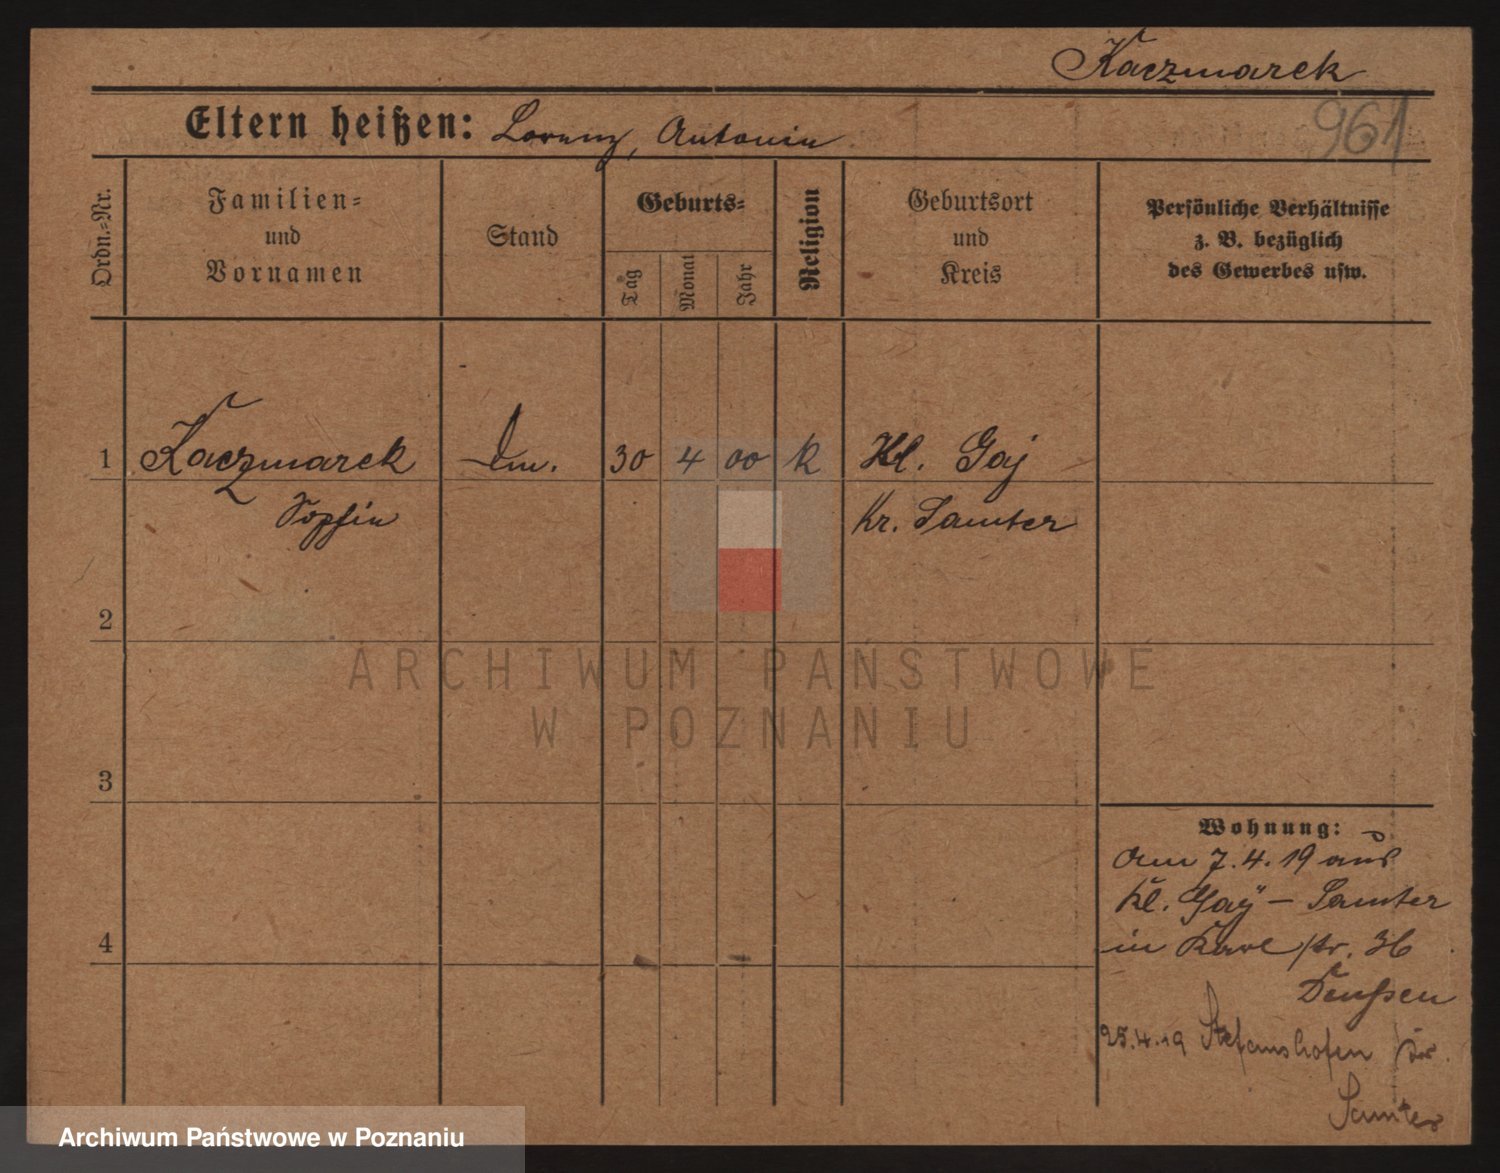 Kaczmarek
961
Eltern heißen: Lorenz, Antonin
Ordn.-Nr.
Familien-
und
Vornamen
Stand
Geburts-
Tag
Monat
Jahr
Religion
Geburtsort
und
Kreis
Persönliche Verhältnisse
z. B. bezüglich
des Gewerbes usw.
1 Kaczmarek 30 4 00 k Kl. Gaj
Sophie Kr. Samter
2
ARCHIWUM PAŃSTWOWE
W POZNANIU
3
4
Wohnung:
am 7.4.19 aus
Kl. Gaÿ - Samter
in Karl str. 36
25.4.19 Stefanshofen Kr.
Samter
Archiwum Państwowe w Poznaniu